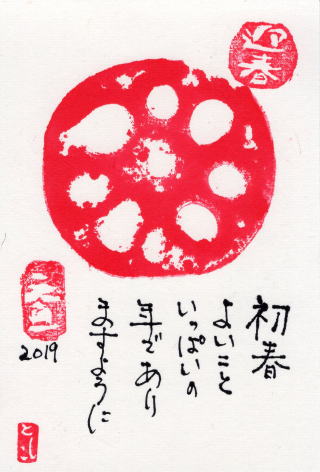 迎春
初春
よいこと
いっぱいの
年であり
ますように
元旦
2019
とし